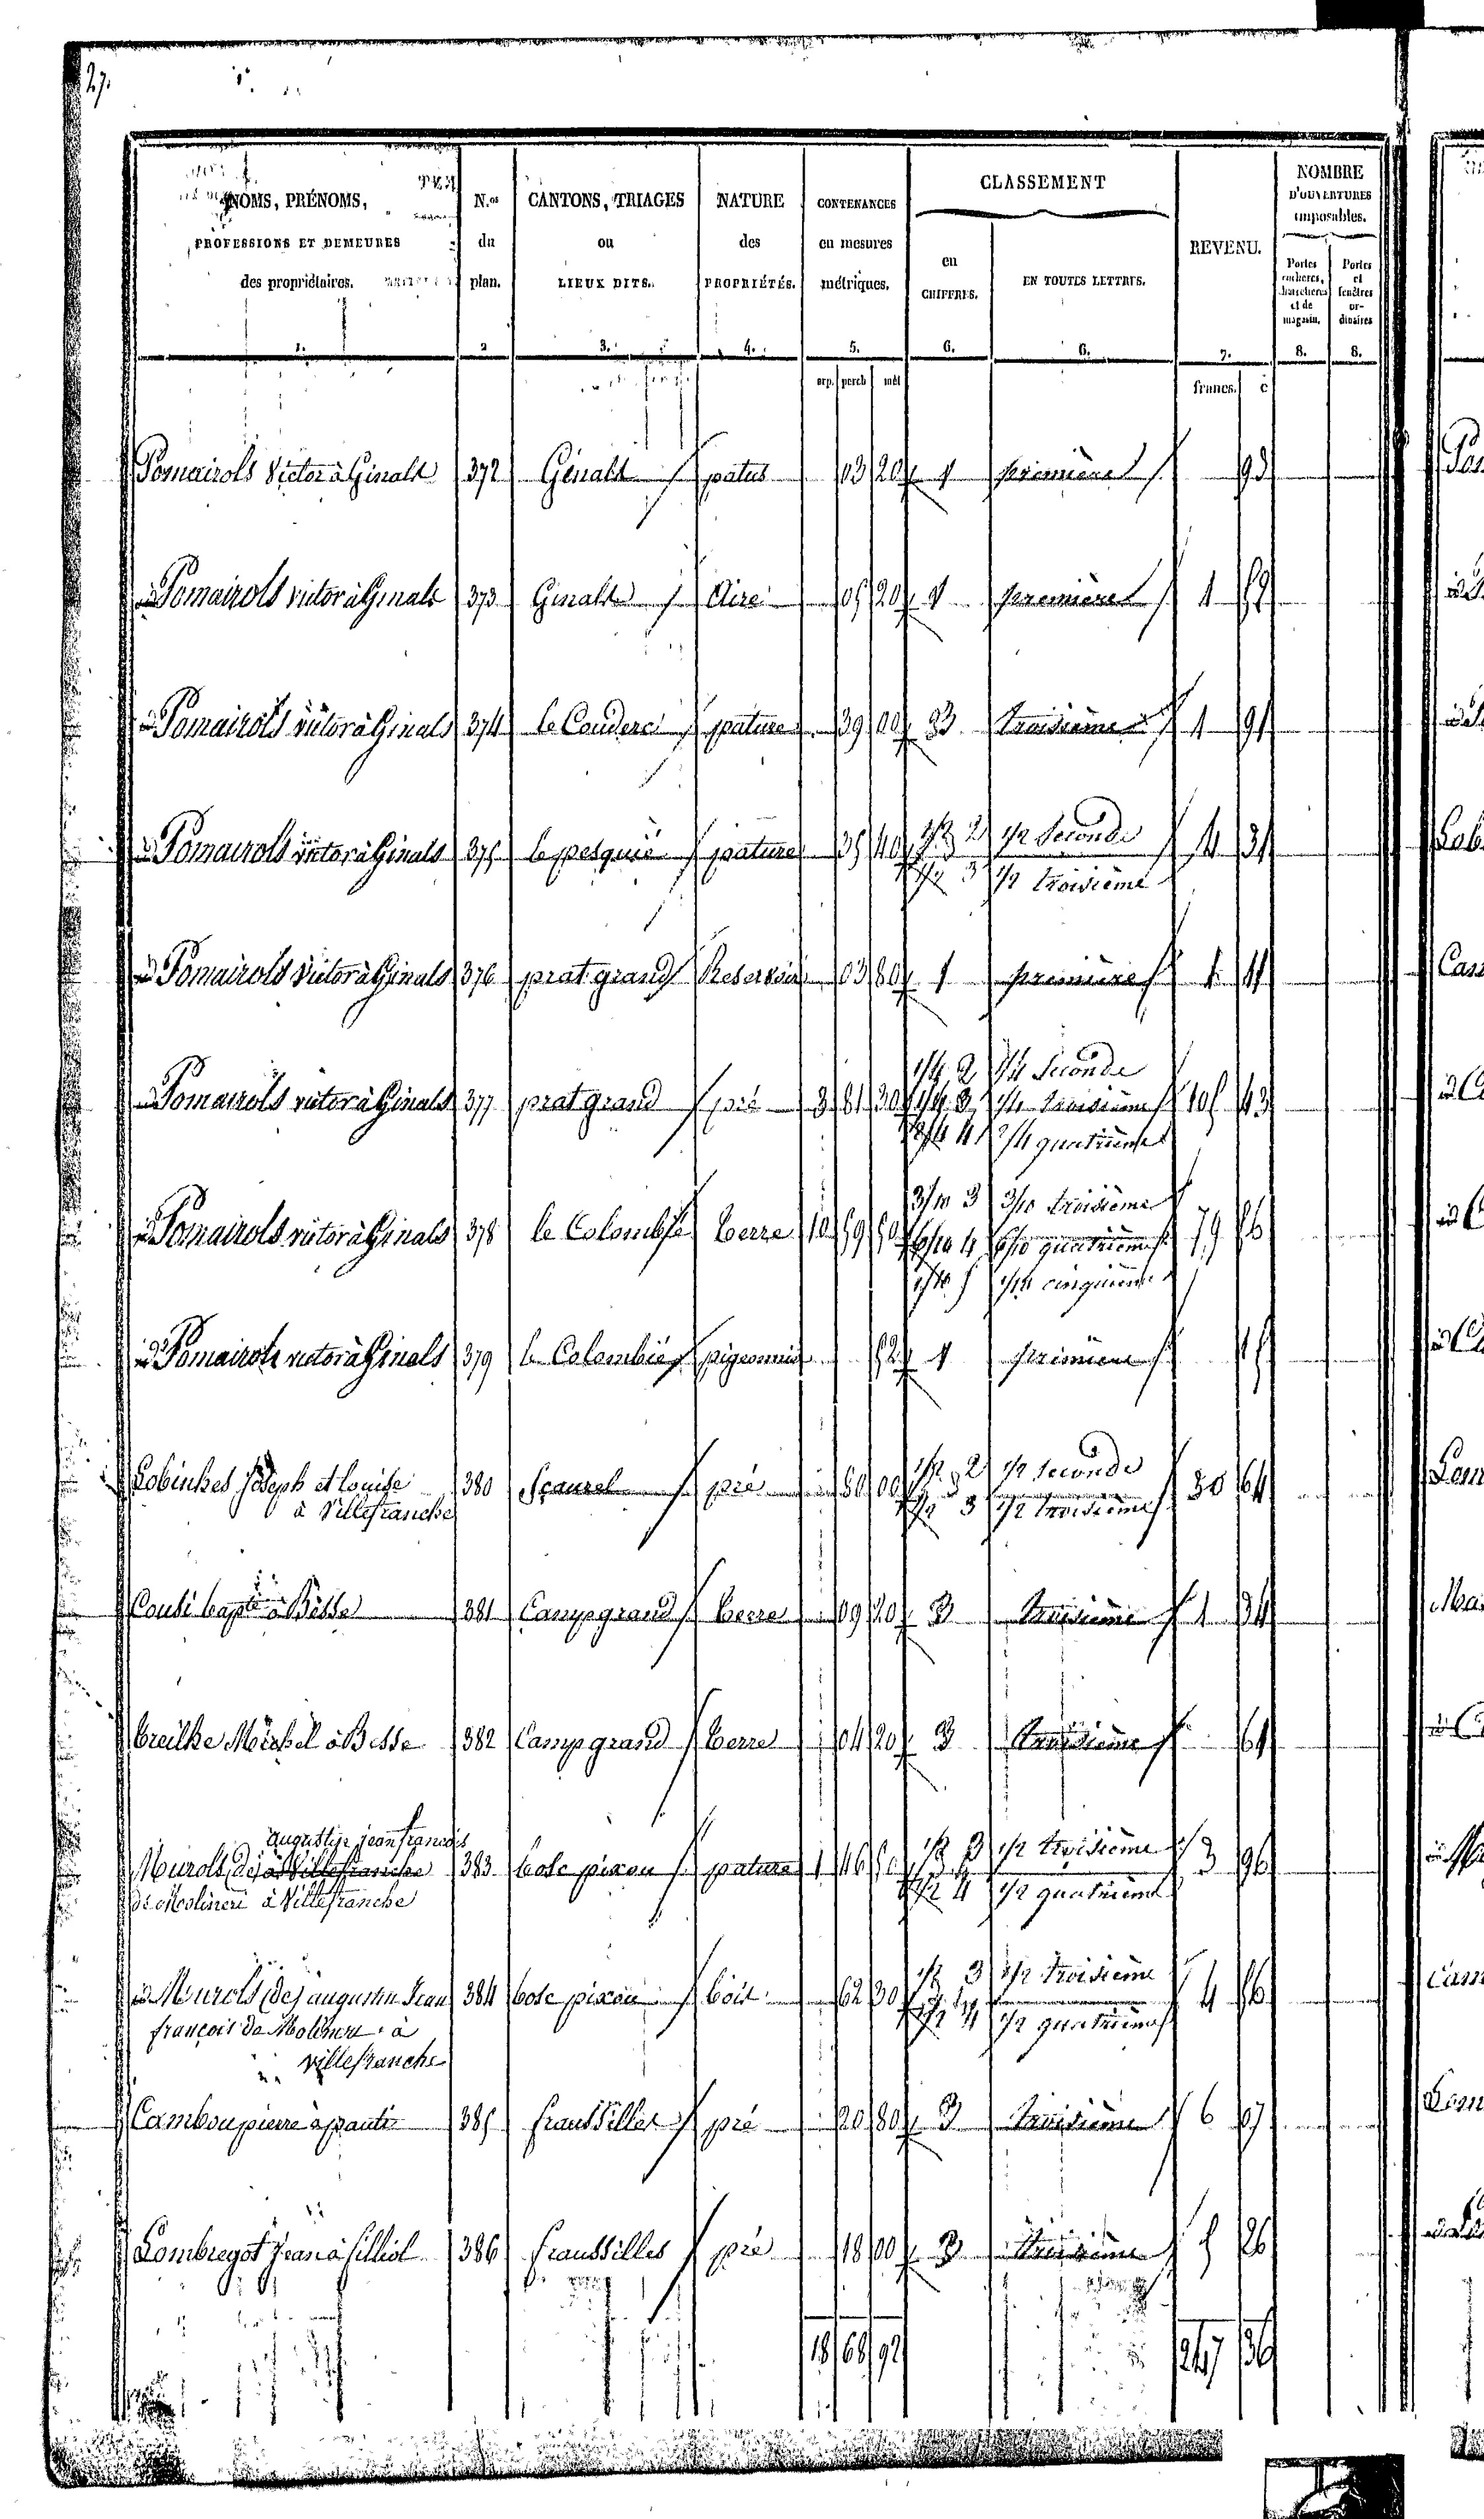 27.
NOMS, PRÉNOMS, PROFESSIONS ET DEMEURES des propriétaires. N.os du plan. CANTONS, TRIAGES ou LIEUX DITS. NATURE des PROPRIÉTÉS. CONTENANCES en mesures métriques. CLASSEMENT en CHIFFRES. EN TOUTES LETTRES. REVENU. NOMBRE D'OUVERTURES imposables. Portes cochères, charretières et de magasin. Portes et fenêtres ordinaires
1. 2 3. 4. 5. 6. 6. 7. 8. 8.
arp. perch mèt francs. c
Pomairols Victor à Ginals 372 Ginals patus 03 20 1 première 95
id Pomairols victor à Ginals 373 Ginals Aire 05 20 1 première 1 57
id Pomairols victor à Ginals 374 le Couderc pature 39 00 3 troisième 1 91
id Pomairols victor à Ginals 375 le pesquié pature 35 40 1/2 2 1/2 Seconde 4 31
1/2 3 1/2 troisième
id Pomairols Victor à Ginals 376 prat grand Reservoir 03 80 1 première 1 11
1/4 2 1/4 Seconde
id Pomairols victor à Ginals 377 prat grand pré 3 81 30 1/4 3 1/4 troisième 105 43
2/4 4 2/4 quatrième
3/10 3 3/10 troisième
id Pomairols victor à Ginals 378 le Colombié terre 10 59 50 6/10 4 6/10 quatrième 79 56
1/10 5 1/10 cinquième
id Pomairols victor à Ginals 379 le Colombié pigeonnier 52 1 première 15
Lobinhes Joseph et Louise 380 Scaurel pré 80 00 1/2 2 1/2 seconde 30 64
à Villefranche 1/2 3 1/2 troisième
Couli bapte à Besse 381 Camp grand terre 09 20 3 troisième 1 34
treilhe Michel à Besse 382 Camp grand terre 04 20 3 troisième 61
augustin jean francois
Murols (de) à Villefranche 383 bosc pixou pature 1 46 50 1/2 3 1/2 troisième 3 96
de Molineri à Villefranche 1/2 4 1/2 quatrième
id Murols (de) augustin Jean 384 bosc pixou bois 62 30 1/2 3 1/2 troisième 4 56
françois de Molineri à 1/2 4 1/2 quatrième
villefranche
Cambou pierre à 385 fraussilles pré 20 80 3 troisième 6 07
Lombregot Jean à filliol 386 fraussilles pré 18 00 3 troisième 5 26
18 68 92 247 36